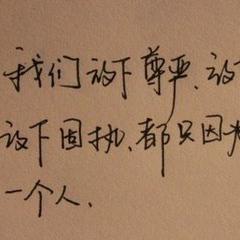 我们放下尊严、放
放下固执、都只因
一个人.